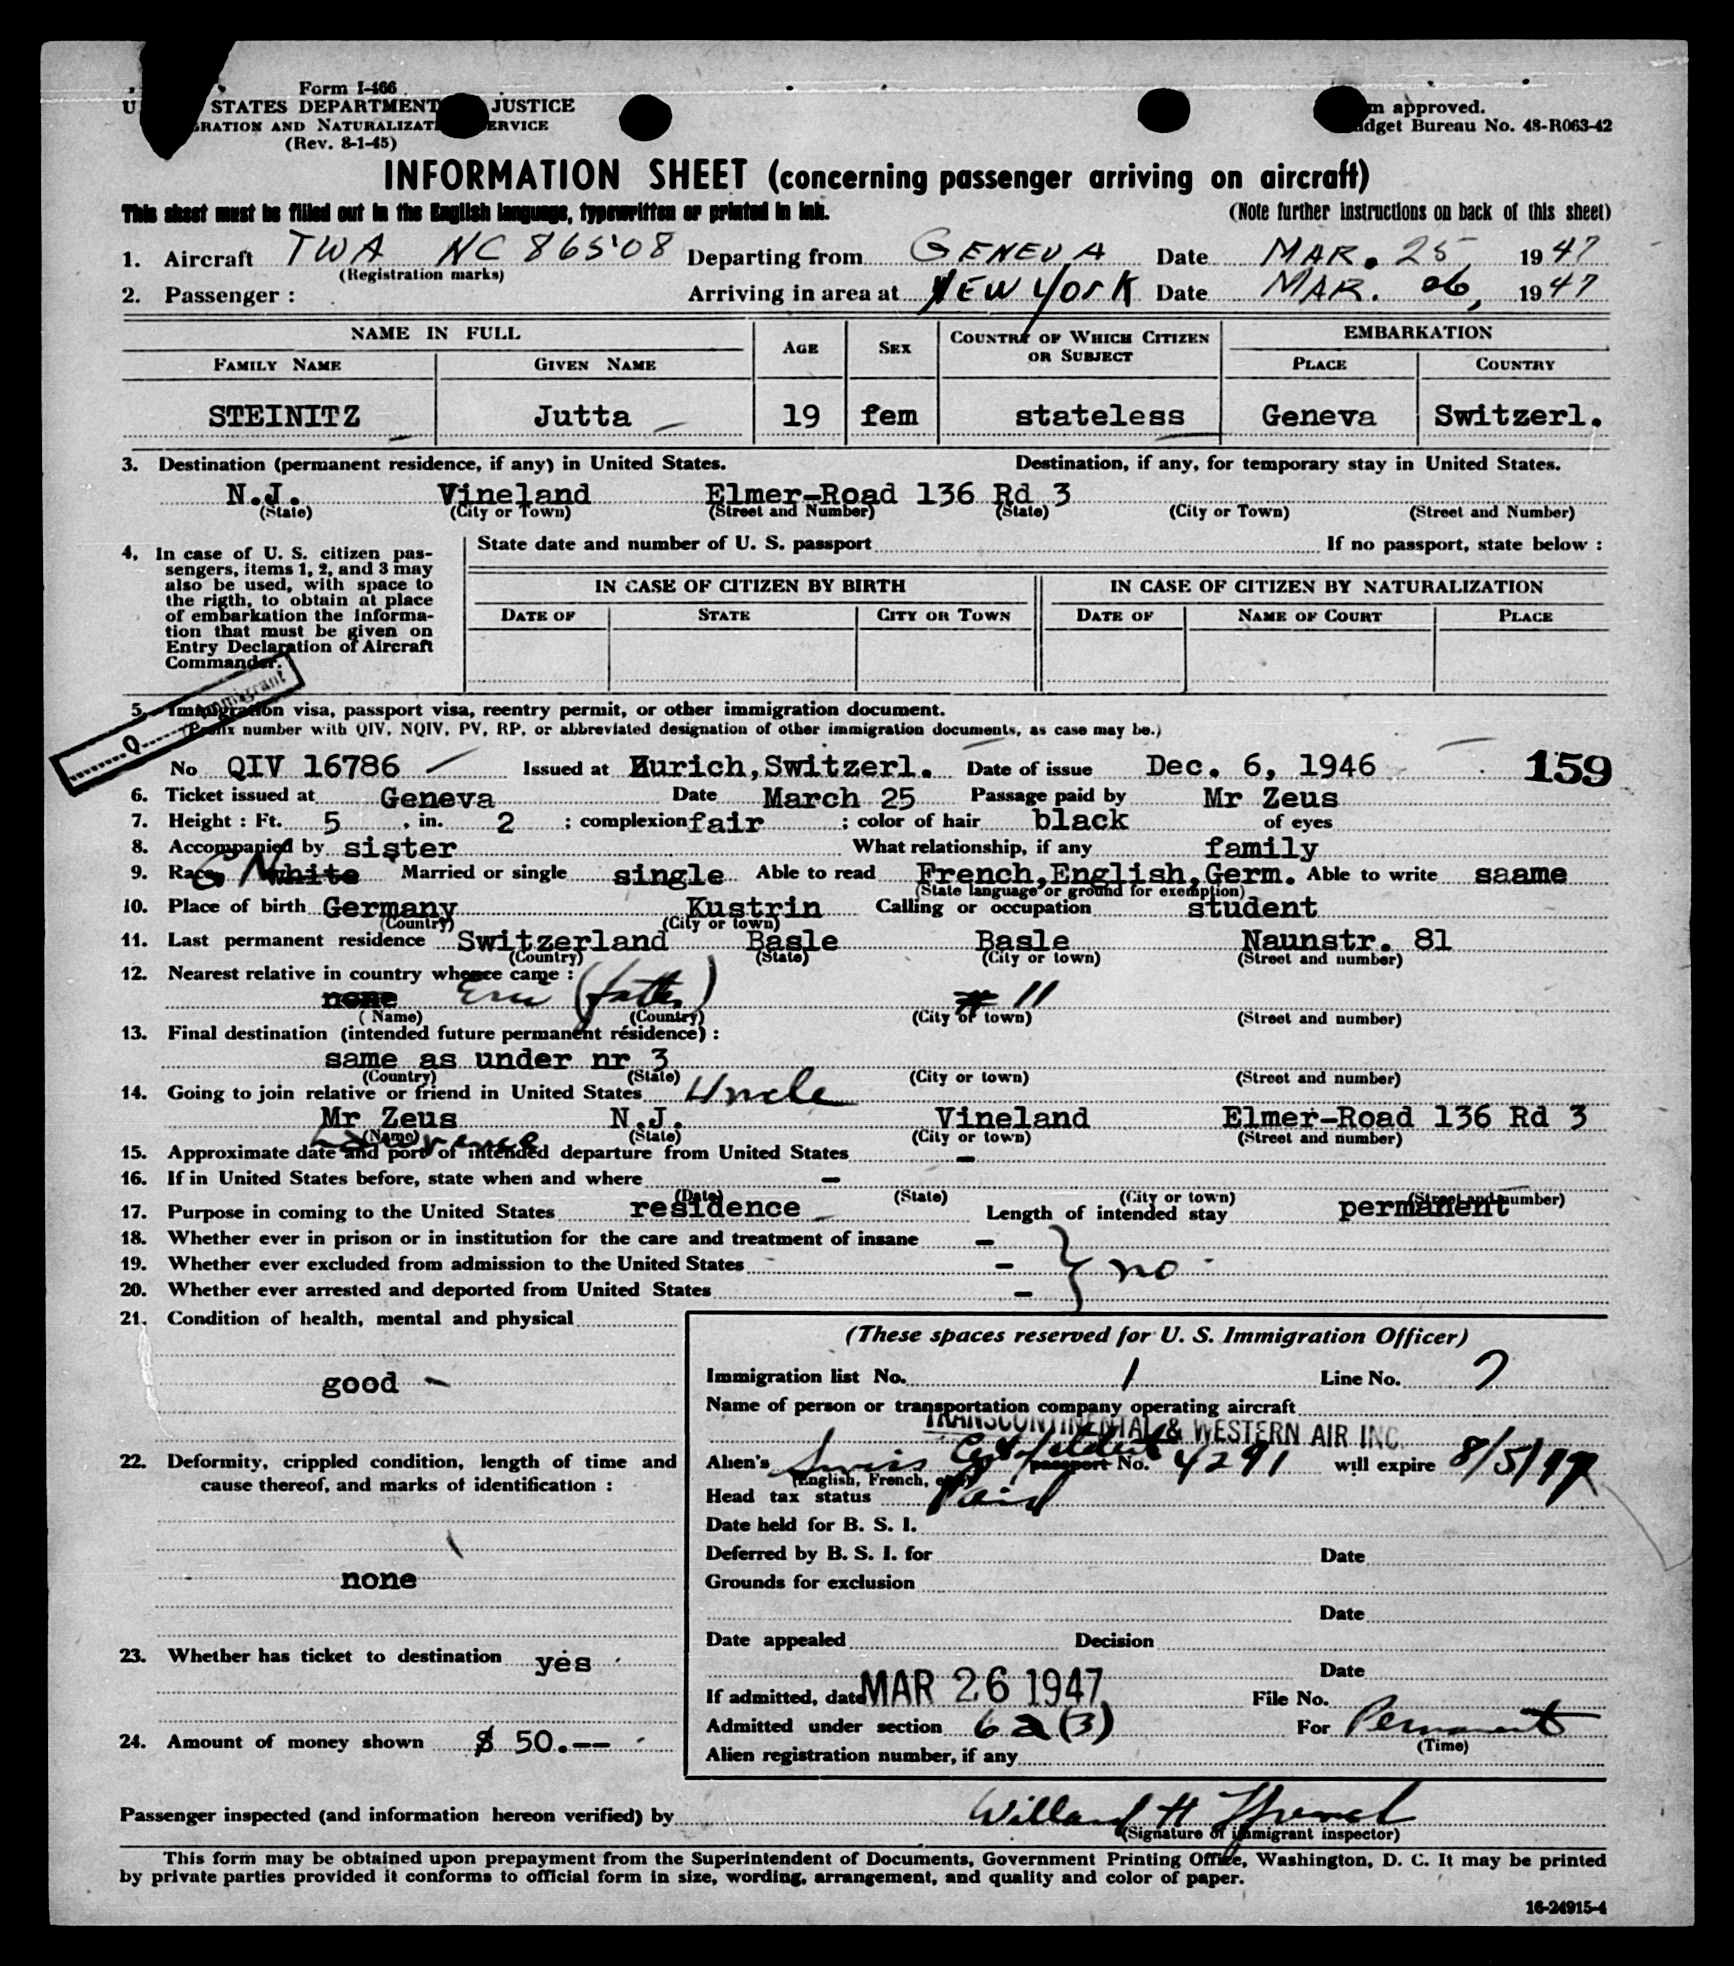 Form I-466
STATES DEPARTMENT JUSTICE
AND NATURALIZAT ERVICE
(Rev. 8-1-45)
approved.
dget Bureau No. 43-R063-42
INFORMATION SHEET (concerning passenger arriving on aircraft)
This sheet must be filled out in the English language, typewritten or printed in ink. (Note further instructions on back of this sheet)
1. Aircraft TWA NC 86508 Departing from GENEVA Date MAR. 25 1947
(Registration marks)
2. Passenger : Arriving in area at NEW YORK Date MAR. 26, 1947
NAME IN FULL AGE SEX COUNTRY OF WHICH CITIZEN OR SUBJECT EMBARKATION
FAMILY NAME GIVEN NAME PLACE COUNTRY
STEINITZ Jutta 19 fem stateless Geneva Switzerl.
3. Destination (permanent residence, if any) in United States. Destination, if any, for temporary stay in United States.
N.J. Vineland Elmer-Road 136 Rd 3
(State) (City or Town) (Street and Number) (State) (City or Town) (Street and Number)
4. In case of U. S. citizen pas-
sengers, items 1, 2, and 3 may
also be used, with space to
the rigth, to obtain at place
of embarkation the informa-
tion that must be given on
Entry Declaration of Aircraft
Commander.
State date and number of U. S. passport If no passport, state below :
IN CASE OF CITIZEN BY BIRTH IN CASE OF CITIZEN BY NATURALIZATION
DATE OF STATE CITY OR TOWN DATE OF NAME OF COURT PLACE
Q Immigrant
5. Immigration visa, passport visa, reentry permit, or other immigration document.
(Prefix number with QIV, NQIV, PV, RP, or abbreviated designation of other immigration documents, as case may be.)
No QIV 16786 Issued at Zurich, Switzerl. Date of issue Dec. 6, 1946 159
6. Ticket issued at Geneva Date March 25 Passage paid by Mr Zeus
7. Height : Ft. 5 , in. 2 ; complexion fair ; color of hair black of eyes
8. Accompanied by sister What relationship, if any family
9. Race white Married or single single Able to read French,English,Germ. Able to write saame
(State language or ground for exemption)
10. Place of birth Germany Kustrin Calling or occupation student
(Country) (City or town)
11. Last permanent residence Switzerland Basle Basle Naunstr. 81
(Country) (State) (City or town) (Street and number)
12. Nearest relative in country whence came :
none (father) # 11
(Name) (Country) (City or town) (Street and number)
13. Final destination (intended future permanent résidence) :
same as under nr 3
(Country) (State) (City or town) (Street and number)
14. Going to join relative or friend in United States Uncle
Mr Zeus N.J. Vineland Elmer-Road 136 Rd 3
(Name) (State) (City or town) (Street and number)
Lawrence
15. Approximate date and port of intended departure from United States -
16. If in United States before, state when and where -
(Date) (State) (City or town) (Street and number)
17. Purpose in coming to the United States residence Length of intended stay permanent
18. Whether ever in prison or in institution for the care and treatment of insane -
19. Whether ever excluded from admission to the United States - } no
20. Whether ever arrested and deported from United States -
21. Condition of health, mental and physical
good
22. Deformity, crippled condition, length of time and
cause thereof, and marks of identification :
none
23. Whether has ticket to destination yes
24. Amount of money shown $ 50.--
(These spaces reserved for U. S. Immigration Officer)
Immigration list No. 1 Line No. 7
Name of person or transportation company operating aircraft
TRANSCONTINENTAL & WESTERN AIR INC.
Alien's Swiss passport No. 4291 will expire 8/5/47
(English, French, etc.)
Head tax status Paid
Date held for B. S. I.
Deferred by B. S. I. for Date
Grounds for exclusion
Date
Date appealed Decision
Date
If admitted, date MAR 26 1947 File No.
Admitted under section 6a(3) For Permanent
(Time)
Alien registration number, if any
Passenger inspected (and information hereon verified) by Willard H
(Signature of immigrant inspector)
This form may be obtained upon prepayment from the Superintendent of Documents, Government Printing Office, Washington, D. C. It may be printed
by private parties provided it conforms to official form in size, wording, arrangement, and quality and color of paper.
16-24915-4